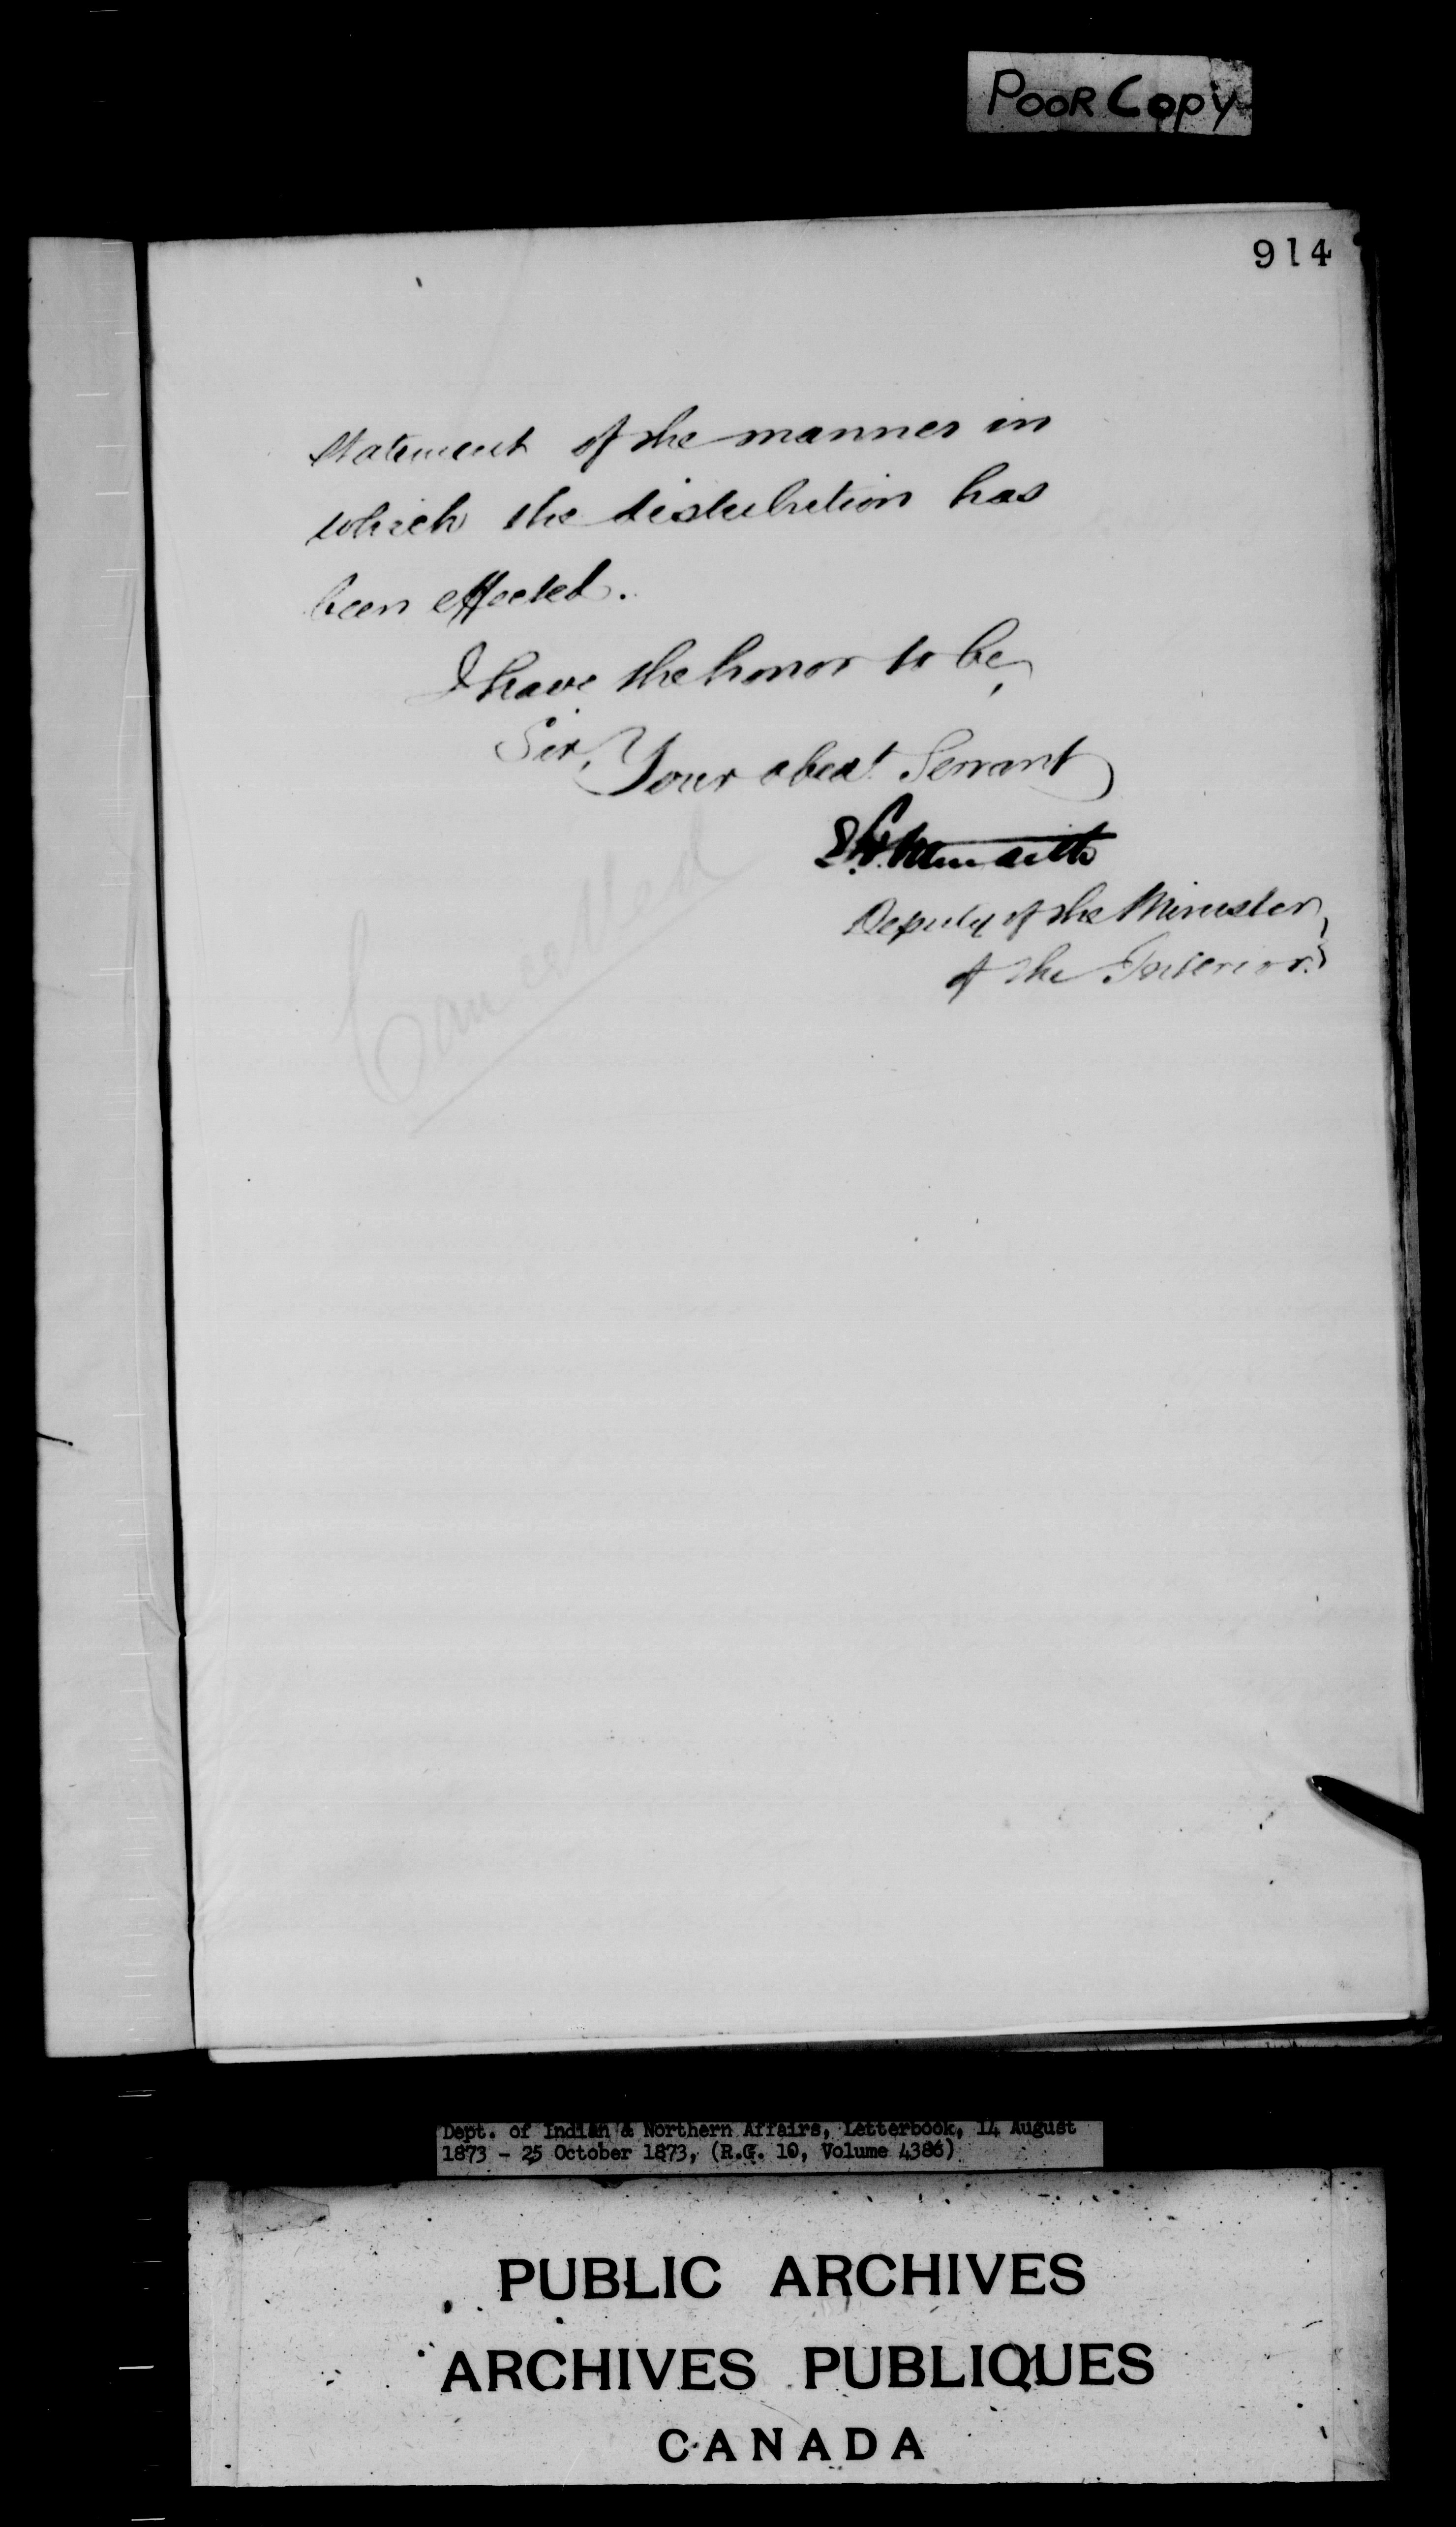 POOR Copy
914
Statement of the manner in
which the distribution has
been effected.
I have the honor to be,
Sir,
Your obedt Servant
Deputy of the Minister
of the Interior.
Cancelled
Dept. of Indian & Northern Affairs, Letterbook, 14 August
1873 - 25 October 1873, (R.G. 10, Volume 4386)
PUBLIC ARCHIVES
ARCHIVES PUBLIQUES
CANADA